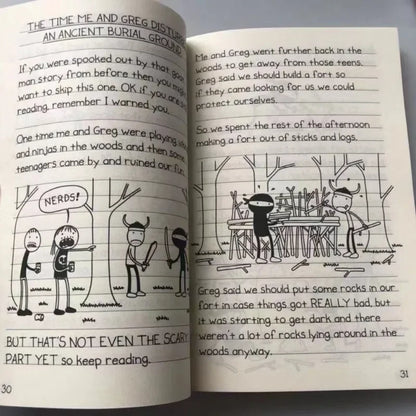 THE TIME ME AND GREG
AN ANCIENT BURIAL GROUND
If you were spooked out by that goat
man story from before then you might
want to skip this one. OK if you are still
reading, remember I warned you.
One time me and Greg were playing
and ninjas in the woods and then some
teenagers came by and ruined our fun.
NERDS!
BUT THAT'S NOT EVEN THE SCARY
PART YET so keep reading.
30
Me and Greg went further back in the
woods to get away from those teens.
Greg said we should build a fort so
if they came looking for us we could
protect ourselves.
So we spent the rest of the afternoon
making a fort out of sticks and logs.
Greg said we should put some rocks in our
fort in case things got REALLY bad, but
it was starting to get dark and there
weren't a lot of rocks lying around in the
woods anyway.
31